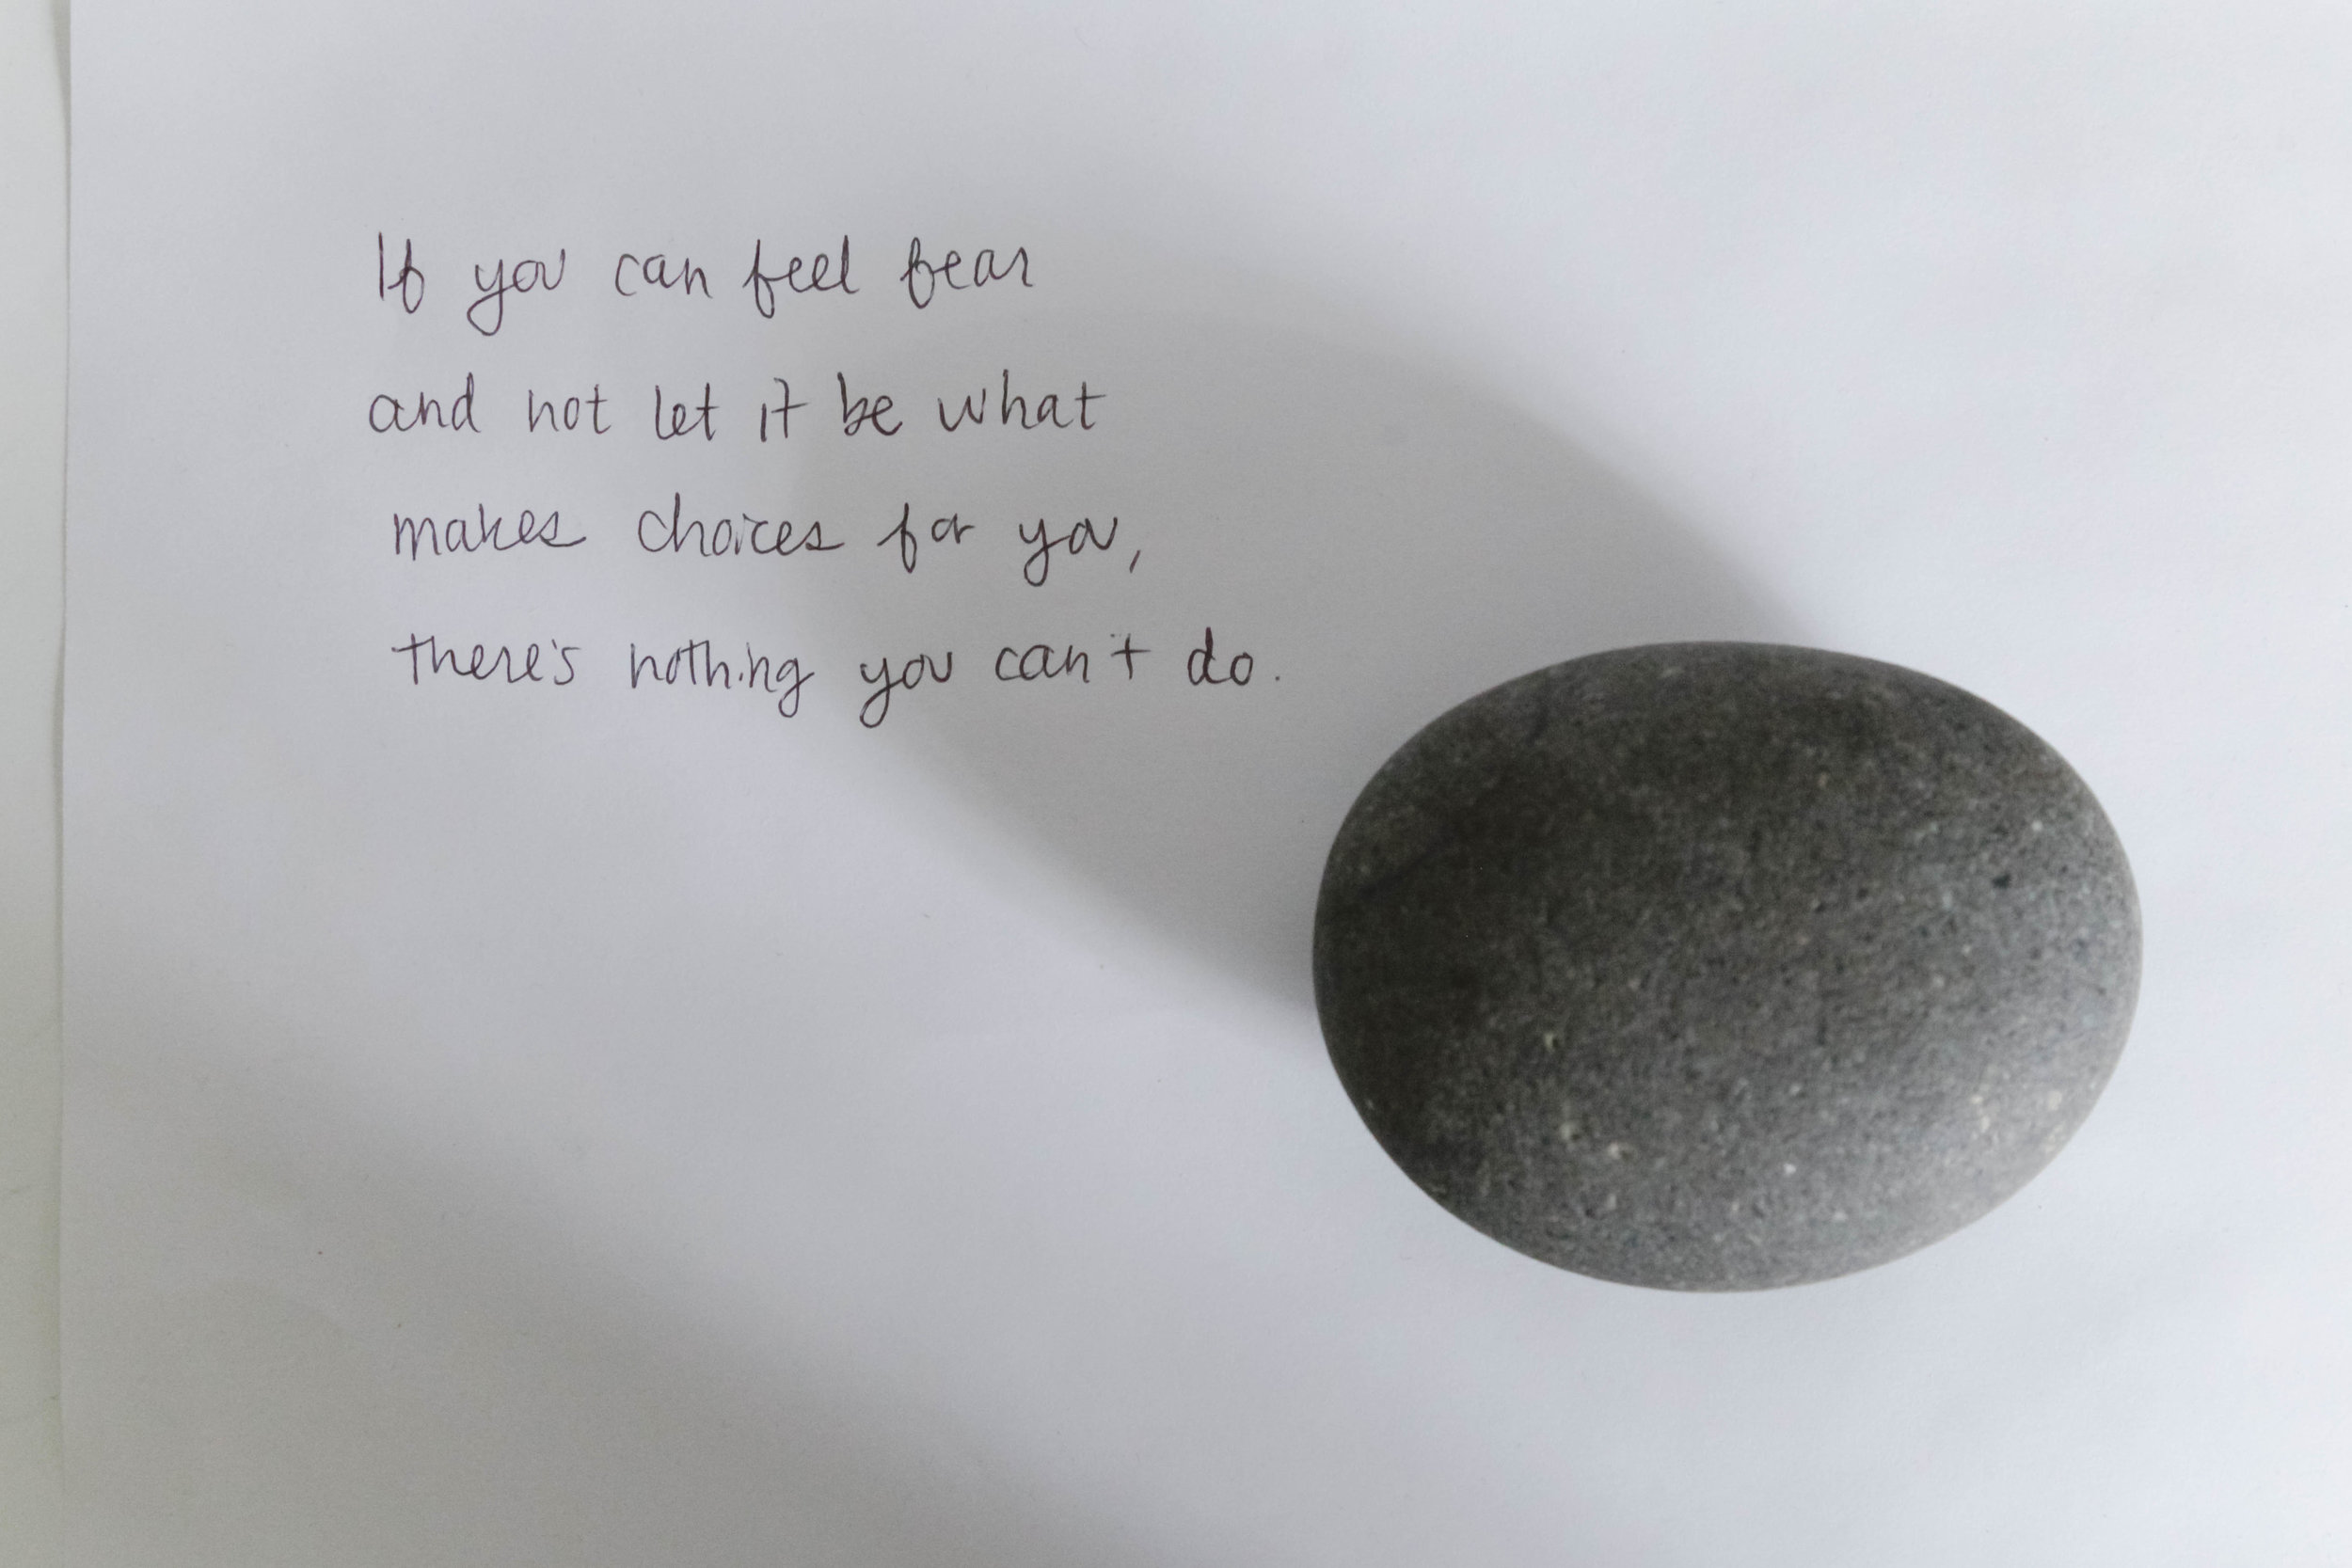 If you can feel fear
and not let it be what
makes choices for you,
there's nothing you can't do.